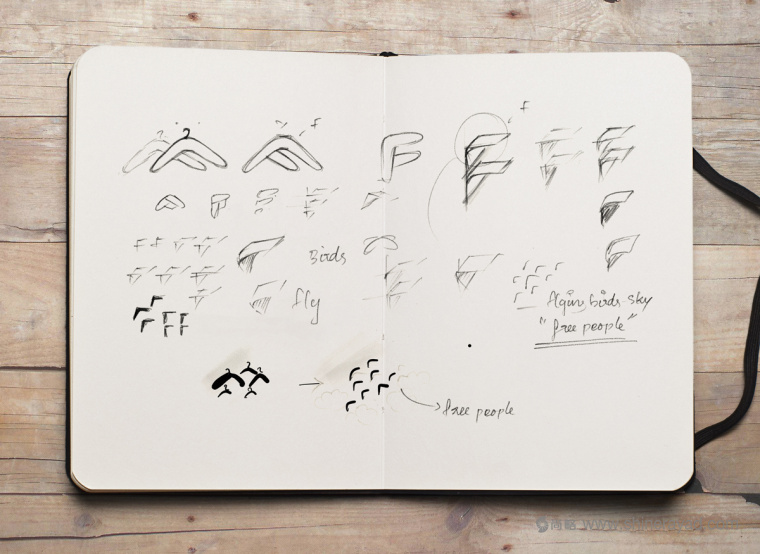 F
F
Birds
fly
birds sky
"free people"
free people